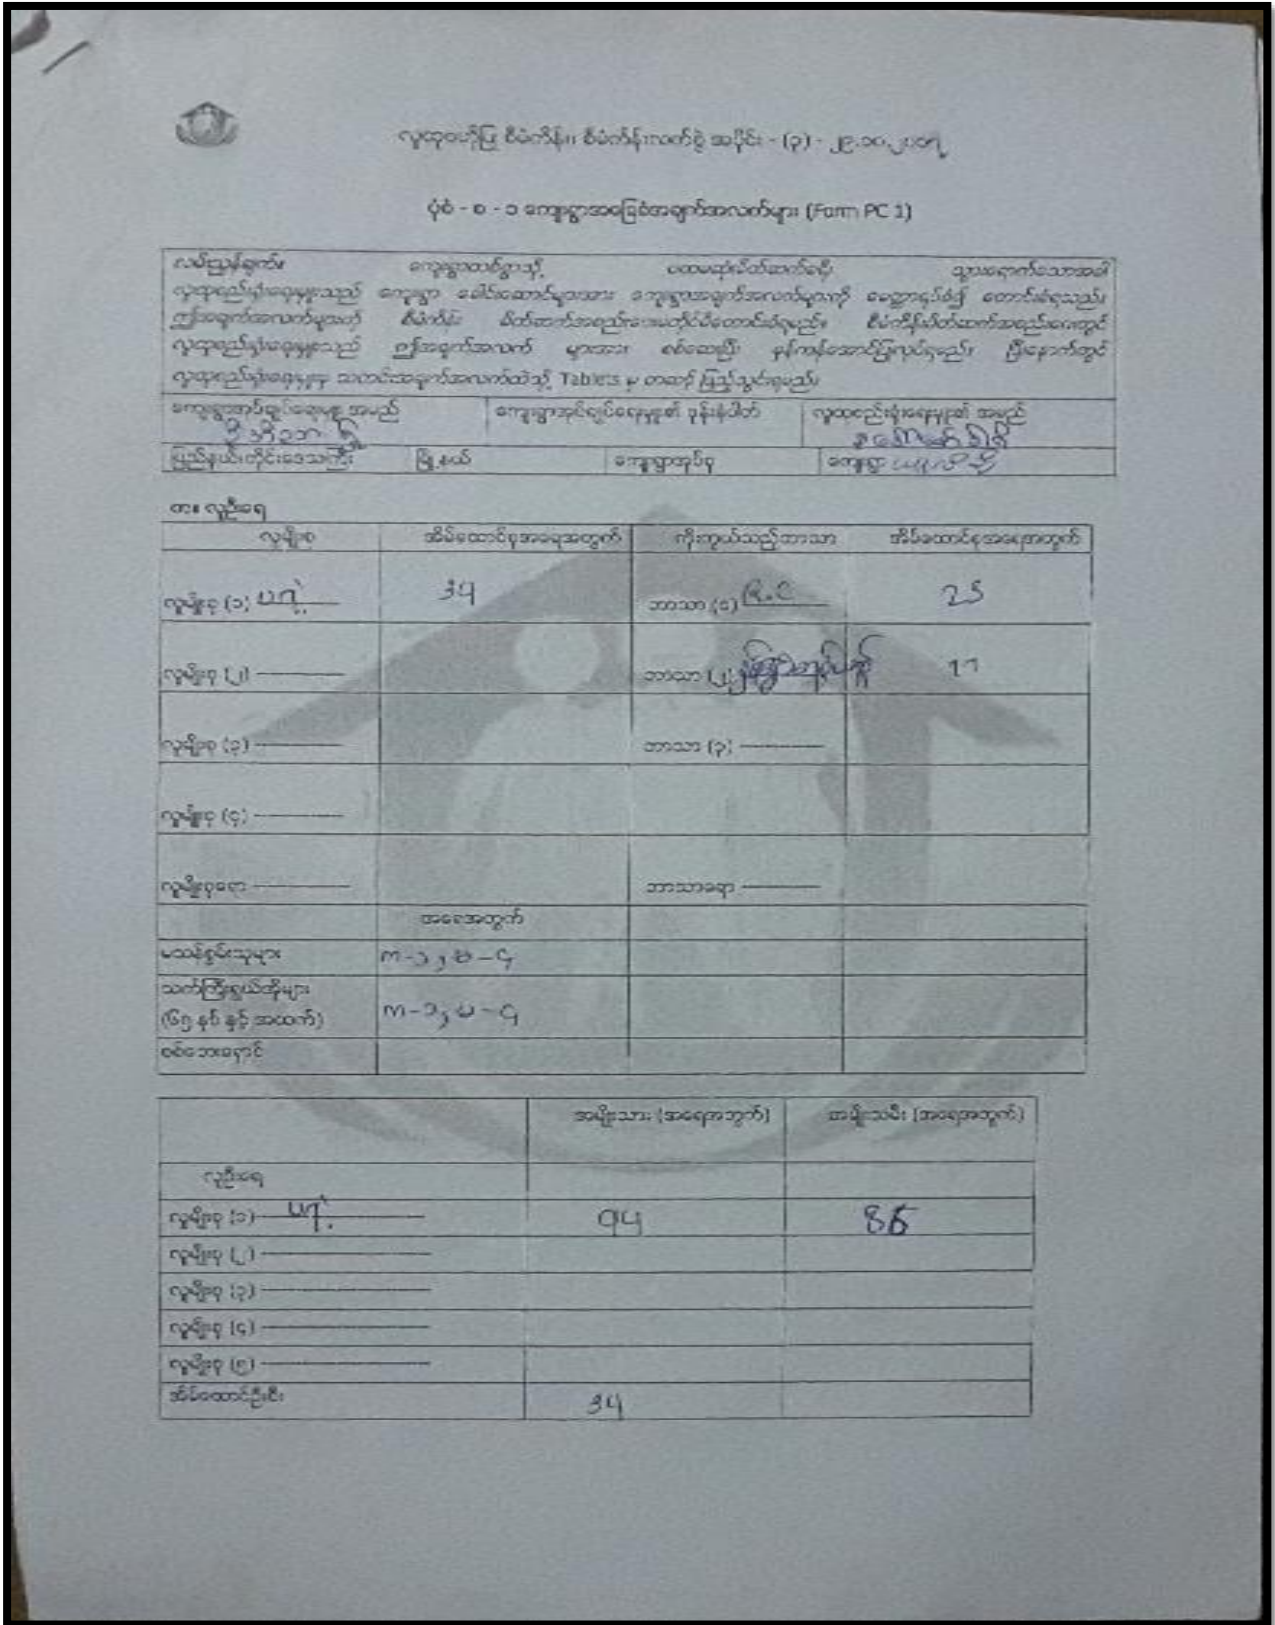 လူထုဗဟိုပြု စီမံကိန်း၊ စီမံကိန်းလက်စွဲ အပိုင်း - (၃) - ၂၉.၁၀.၂၀၁၇
ပုံစံ - စ - ၁ ကျေးရွာအခြေခံအချက်အလက်များ (Form PC 1)
လမ်းညွှန်ချက်။ ကျေးရွာတစ်ရွာသို့ ပထမဆုံးမိတ်ဆက်ခရီး သွားရောက်သောအခါ
လူထုစည်းရုံးရေးမှူးသည် ကျေးရွာ ခေါင်းဆောင်များအား ကျေးရွာအချက်အလက်များကို မေတ္တာရပ်ခံ၍ တောင်းခံရသည်။
ဤအချက်အလက်များကို စီမံကိန်း မိတ်ဆက်အစည်းအဝေးတိုင်းတောင်းခံရမည်။ စီမံကိန်းမိတ်ဆက်အစည်းအဝေးတွင်
လူထုစည်းရုံးရေးမှူးသည် ဤအချက်အလက် များအား စစ်ဆေးပြီး မှန်ကန်အောင်ပြုလုပ်ရမည်။ ပြီးနောက်တွင်
လူထုစည်းရုံးရေးမှူးမှ သတင်းအချက်အလက်ထဲသို့ Tablets မှ တဆင့် ဖြည့်သွင်းရမည်။
ကျေးရွာအုပ်ချုပ်ရေးမှူး အမည် ကျေးရွာအုပ်ချုပ်ရေးမှူး၏ ဖုန်းနံပါတ် လူထုစည်းရုံးရေးမှူး၏ အမည်
ပြည်နယ်၊တိုင်းဒေသကြီး မြို့နယ် ကျေးရွာအုပ်စု ကျေးရွာ
က။ လူဦးရေ
လူမျိုးစု အိမ်ထောင်စုအရေအတွက် ကိုးကွယ်သည့်ဘာသာ အိမ်ထောင်စုအရေအတွက်
လူမျိုးစု (၁) 34 ဘာသာ (၁) R.C 25
လူမျိုးစု (၂) ဘာသာ (၂) နှစ်ခြင်း 11
လူမျိုးစု (၃) ဘာသာ (၃)
လူမျိုးစု (၄)
လူမျိုးစုရော ဘာသာရော
အရေအတွက်
မသန်စွမ်းသူများ က-၁, မ-၄
သက်ကြီးရွယ်အိုများ
(၆၅ နှစ် နှင့် အထက်) က-၁, မ-၄
စစ်ဘေးရှောင်
အမျိုးသား (အရေအတွက်) အမျိုးသမီး (အရေအတွက်)
လူဦးရေ
လူမျိုးစု (၁) 94 86
လူမျိုးစု (၂)
လူမျိုးစု (၃)
လူမျိုးစု (၄)
လူမျိုးစု (၅)
အိမ်ထောင်ဦးစီး 34